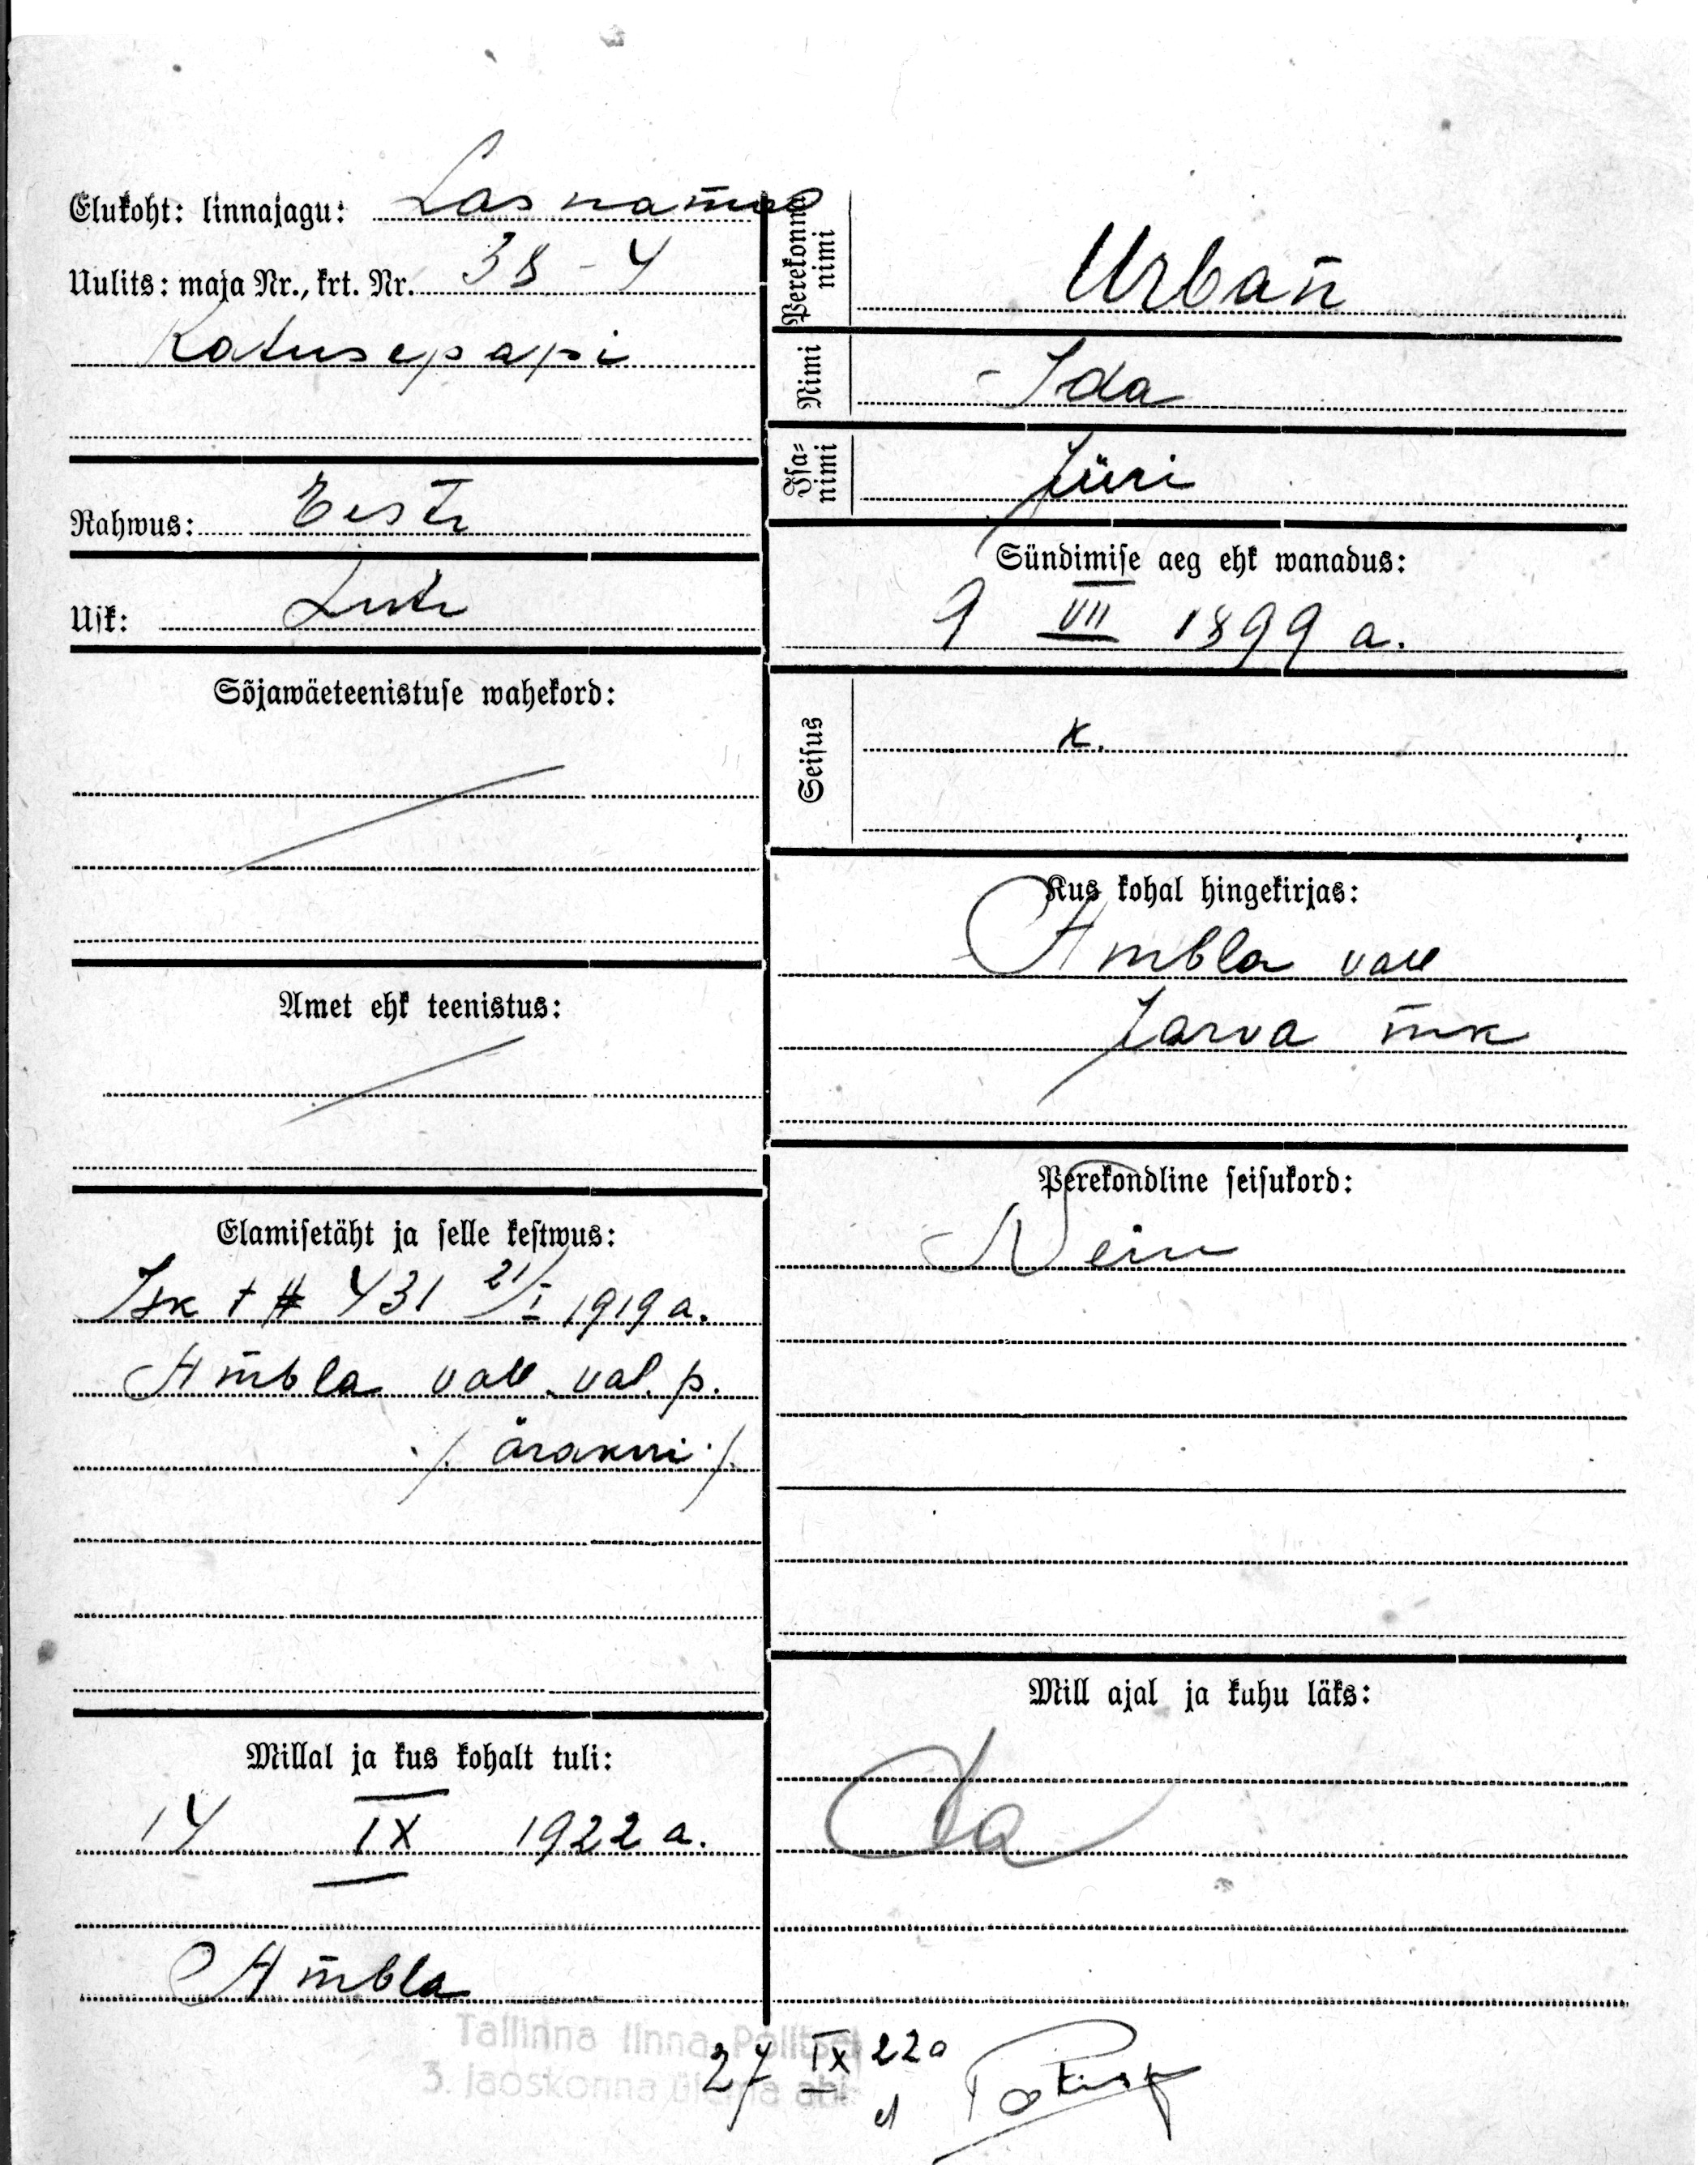 Elukoht: linnajagu: Lasnamäe
Uulits: maja Nr., krt. Nr. 38 - 4
Katusepapi
Rahwus: Eesti
Usk: Luti
Sõjawäeteenistuse wahekord:
Amet ehk teenistus:
Elamisetäht ja selle kestwus:
Isk t # 431 21/I 1919 a.
Ambla vall. val. p.
./. ärakiri ./.
Millal ja kus kohalt tuli:
14 IX 1922 a.
Ambla
Perekonna nimi
Urban
Nimi
Ida
Isa-nimi
Jüri
Sündimise aeg ehk wanadus:
9 VII 1899 a.
Seisus
k.
Kus kohal hingekirjas:
Ambla vall
Jarva mk
Perekondline seisukord:
Nein
Mill ajal ja kuhu läks:
Tallinna linna Politsei
3. jaoskonna ülema abi
27 IX 22 a